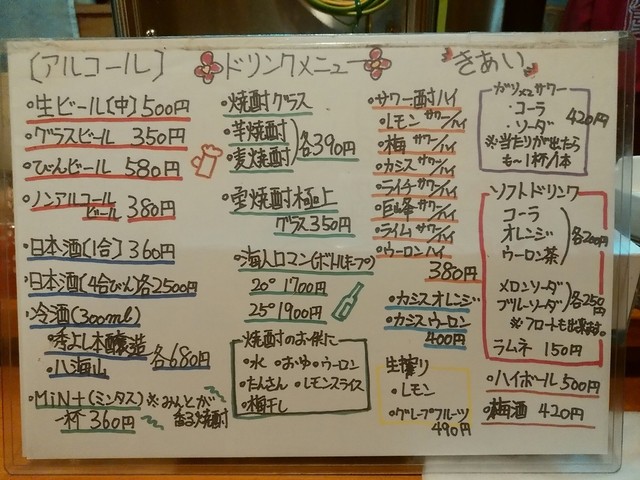 [アルコール] ドリンクメニュー きあい
・生ビール[中] 500円
・グラスビール 350円
・びんビール 580円
・ノンアルコールビール 380円
・日本酒[1合] 360円
・日本酒(4合びん)各2500円
・冷酒(300ml)
・秀よし本醸造
・八海山
各680円
・MiNt(ミンタス)※みんとが香る焼酎
一杯360円
・焼酎グラス
・芋焼酎
・麦焼酎
各390円
・宝焼酎極上
グラス350円
・海人ロマン(ボトルキープ)
20° 1700円
25° 1900円
・焼酎のお供に
・水 ・おゆ ・ウーロン
・たんさん ・レモンスライス
・梅干し
・サワー・酎ハイ
・レモンサワー/ハイ
・梅サワー/ハイ
・カシスサワー/ハイ
・ライチサワー/ハイ
・巨峰サワー/ハイ
・ライムサワー/ハイ
・ウーロンハイ
380円
・カシスオレンジ
・カシスウーロン
400円
生搾り
・レモン
・グレープフルーツ
490円
ガリガリサワー
・コーラ
・ソーダ
420円
※当たりが出たら
も〜1杯/1本
ソフトドリンク
コーラ
オレンジ
ウーロン茶
各200円
メロンソーダ
ブルーソーダ
各250円
※フロートも出来ます。
ラムネ 150円
・ハイボール 500円
・梅酒 420円